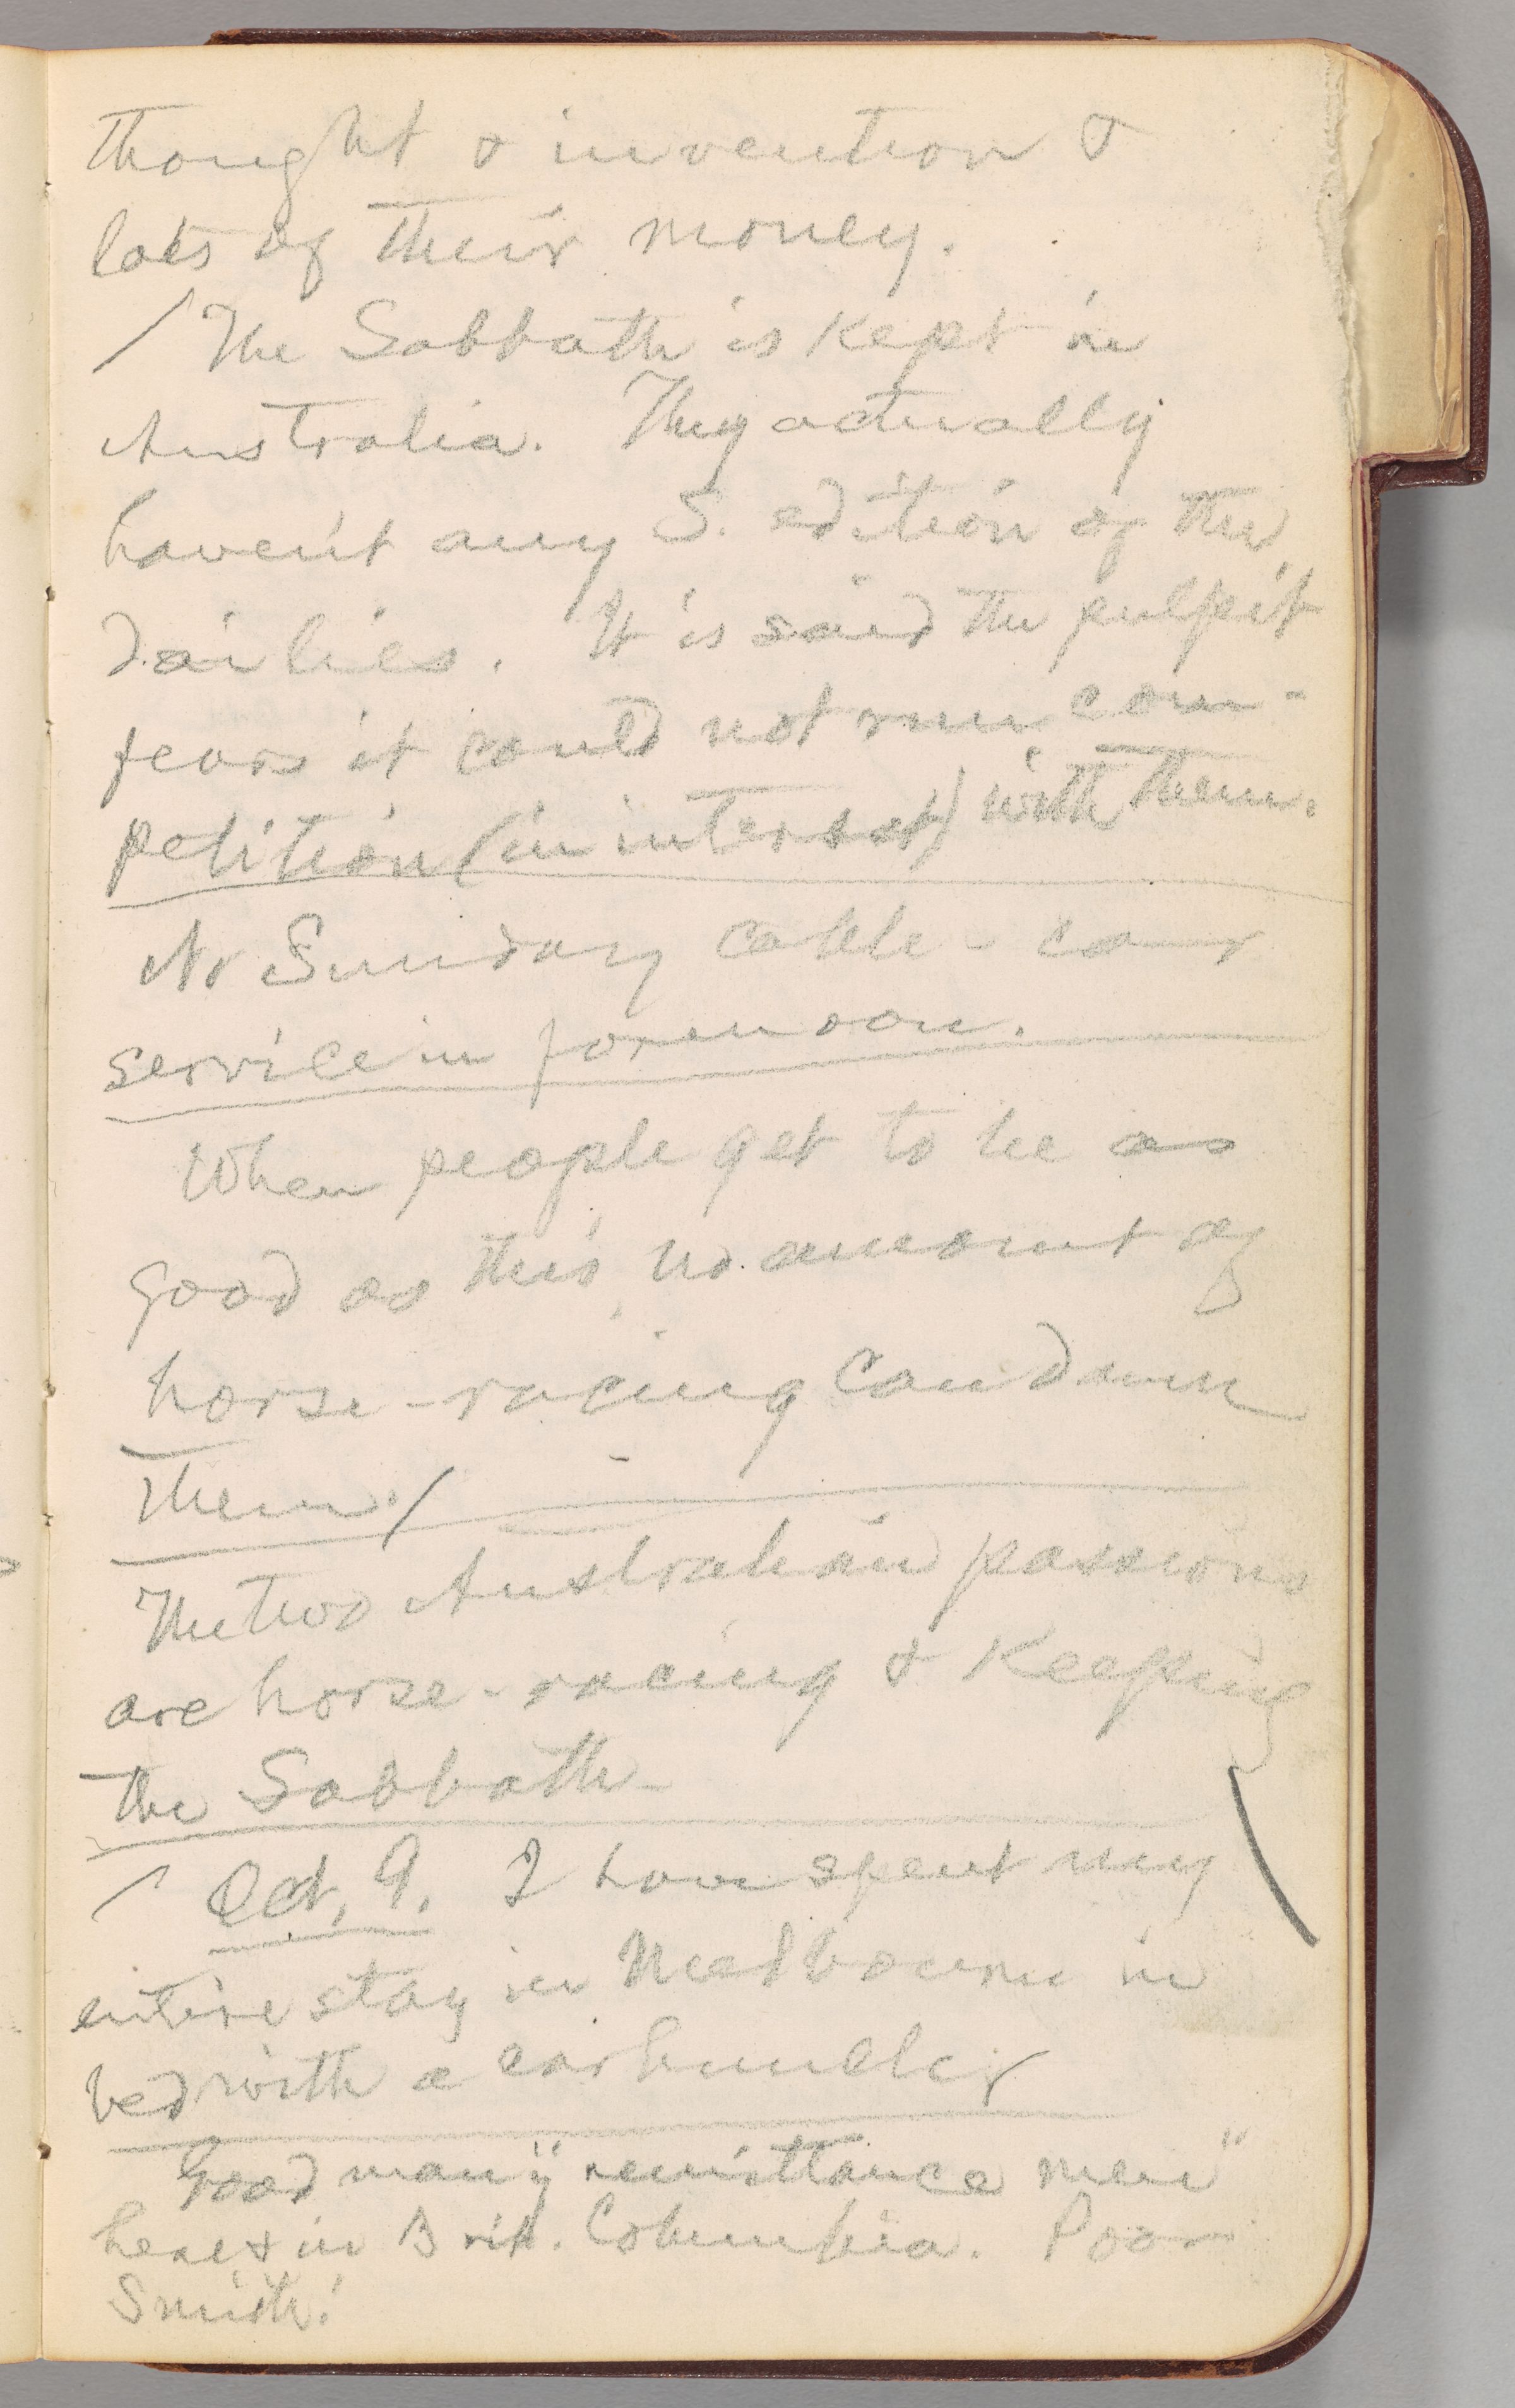 thought & invention &
lots of their money.
/ The Sabbath is kept in
Australia. They actually
haven't any S. edition of the
dailies. It is said the pulpit
fears it could not run com-
petition (in interest) with them.
No Sunday cable-car
service in forenoon.
When people get to be as
good as this, no amount of
horse-racing can damn
them./
The two Australian passions
are horse-racing & keeping
the Sabbath.
/ Oct. 9. I have spent my
entire stay in Melbourne in
bed with a carbuncle./
Good many "remittance men"
here & in Brit. Columbia. Poor
Smith!